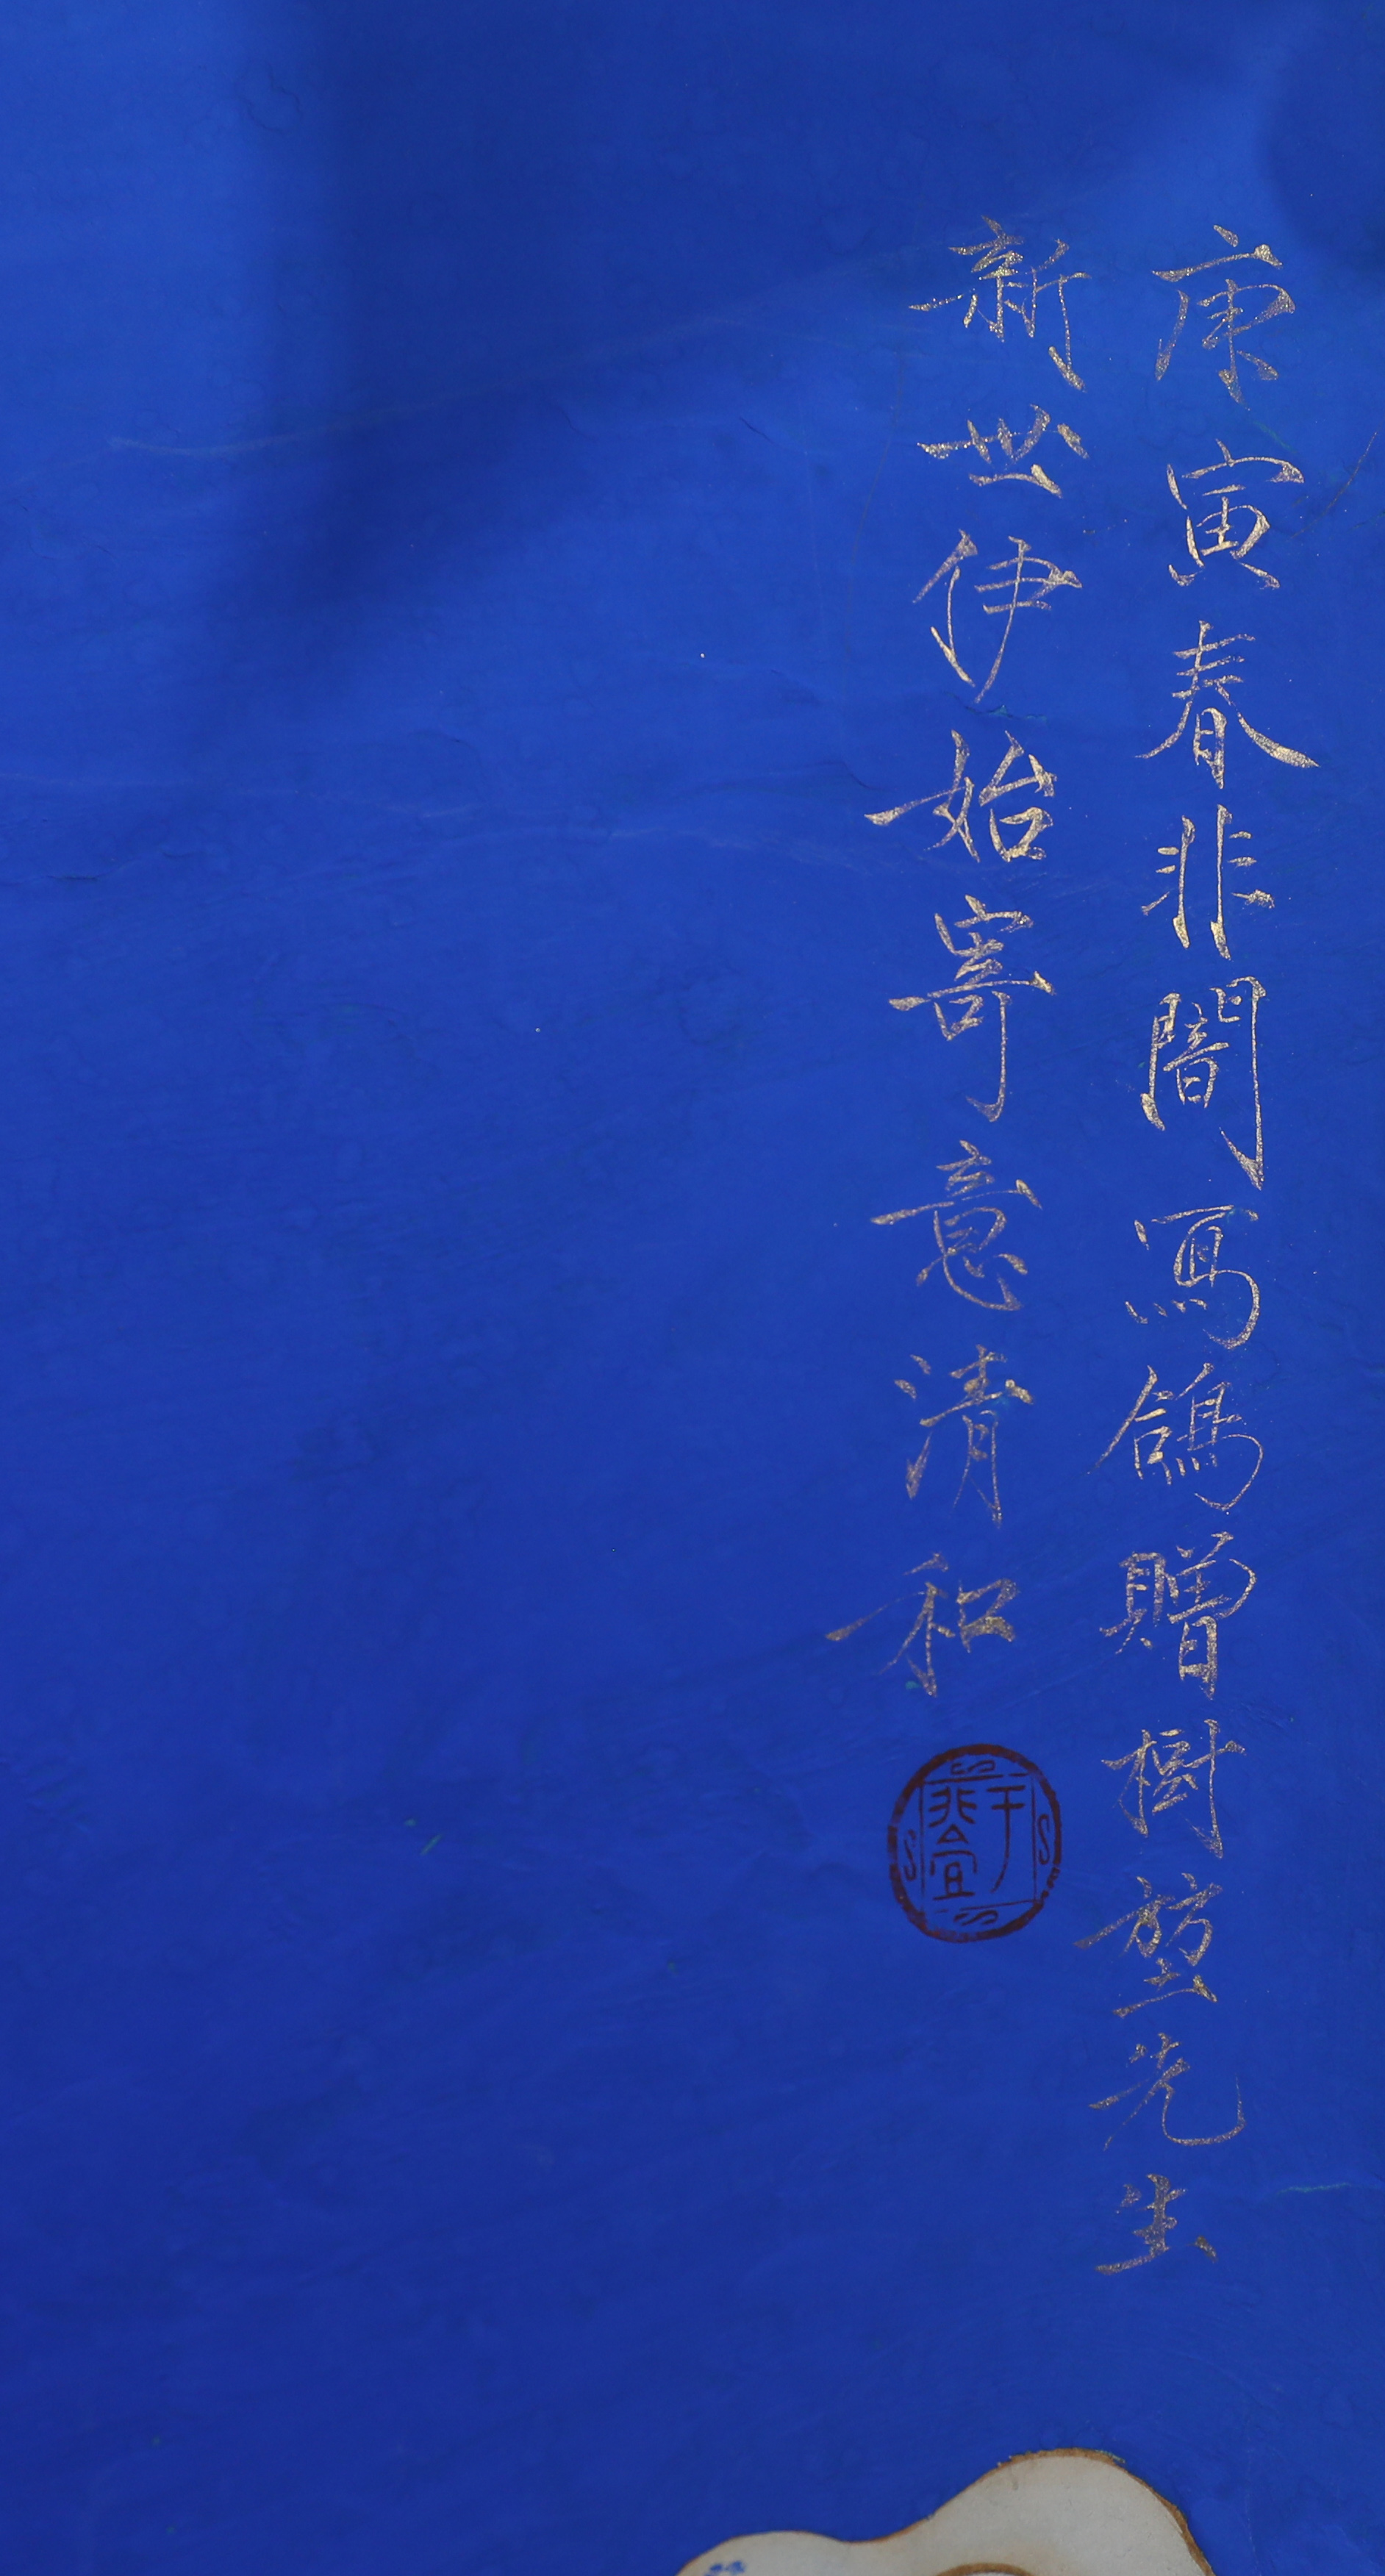 庚寅春非闇寫鴿贈樹堃先生
新世伊始寄意清和
于非闇